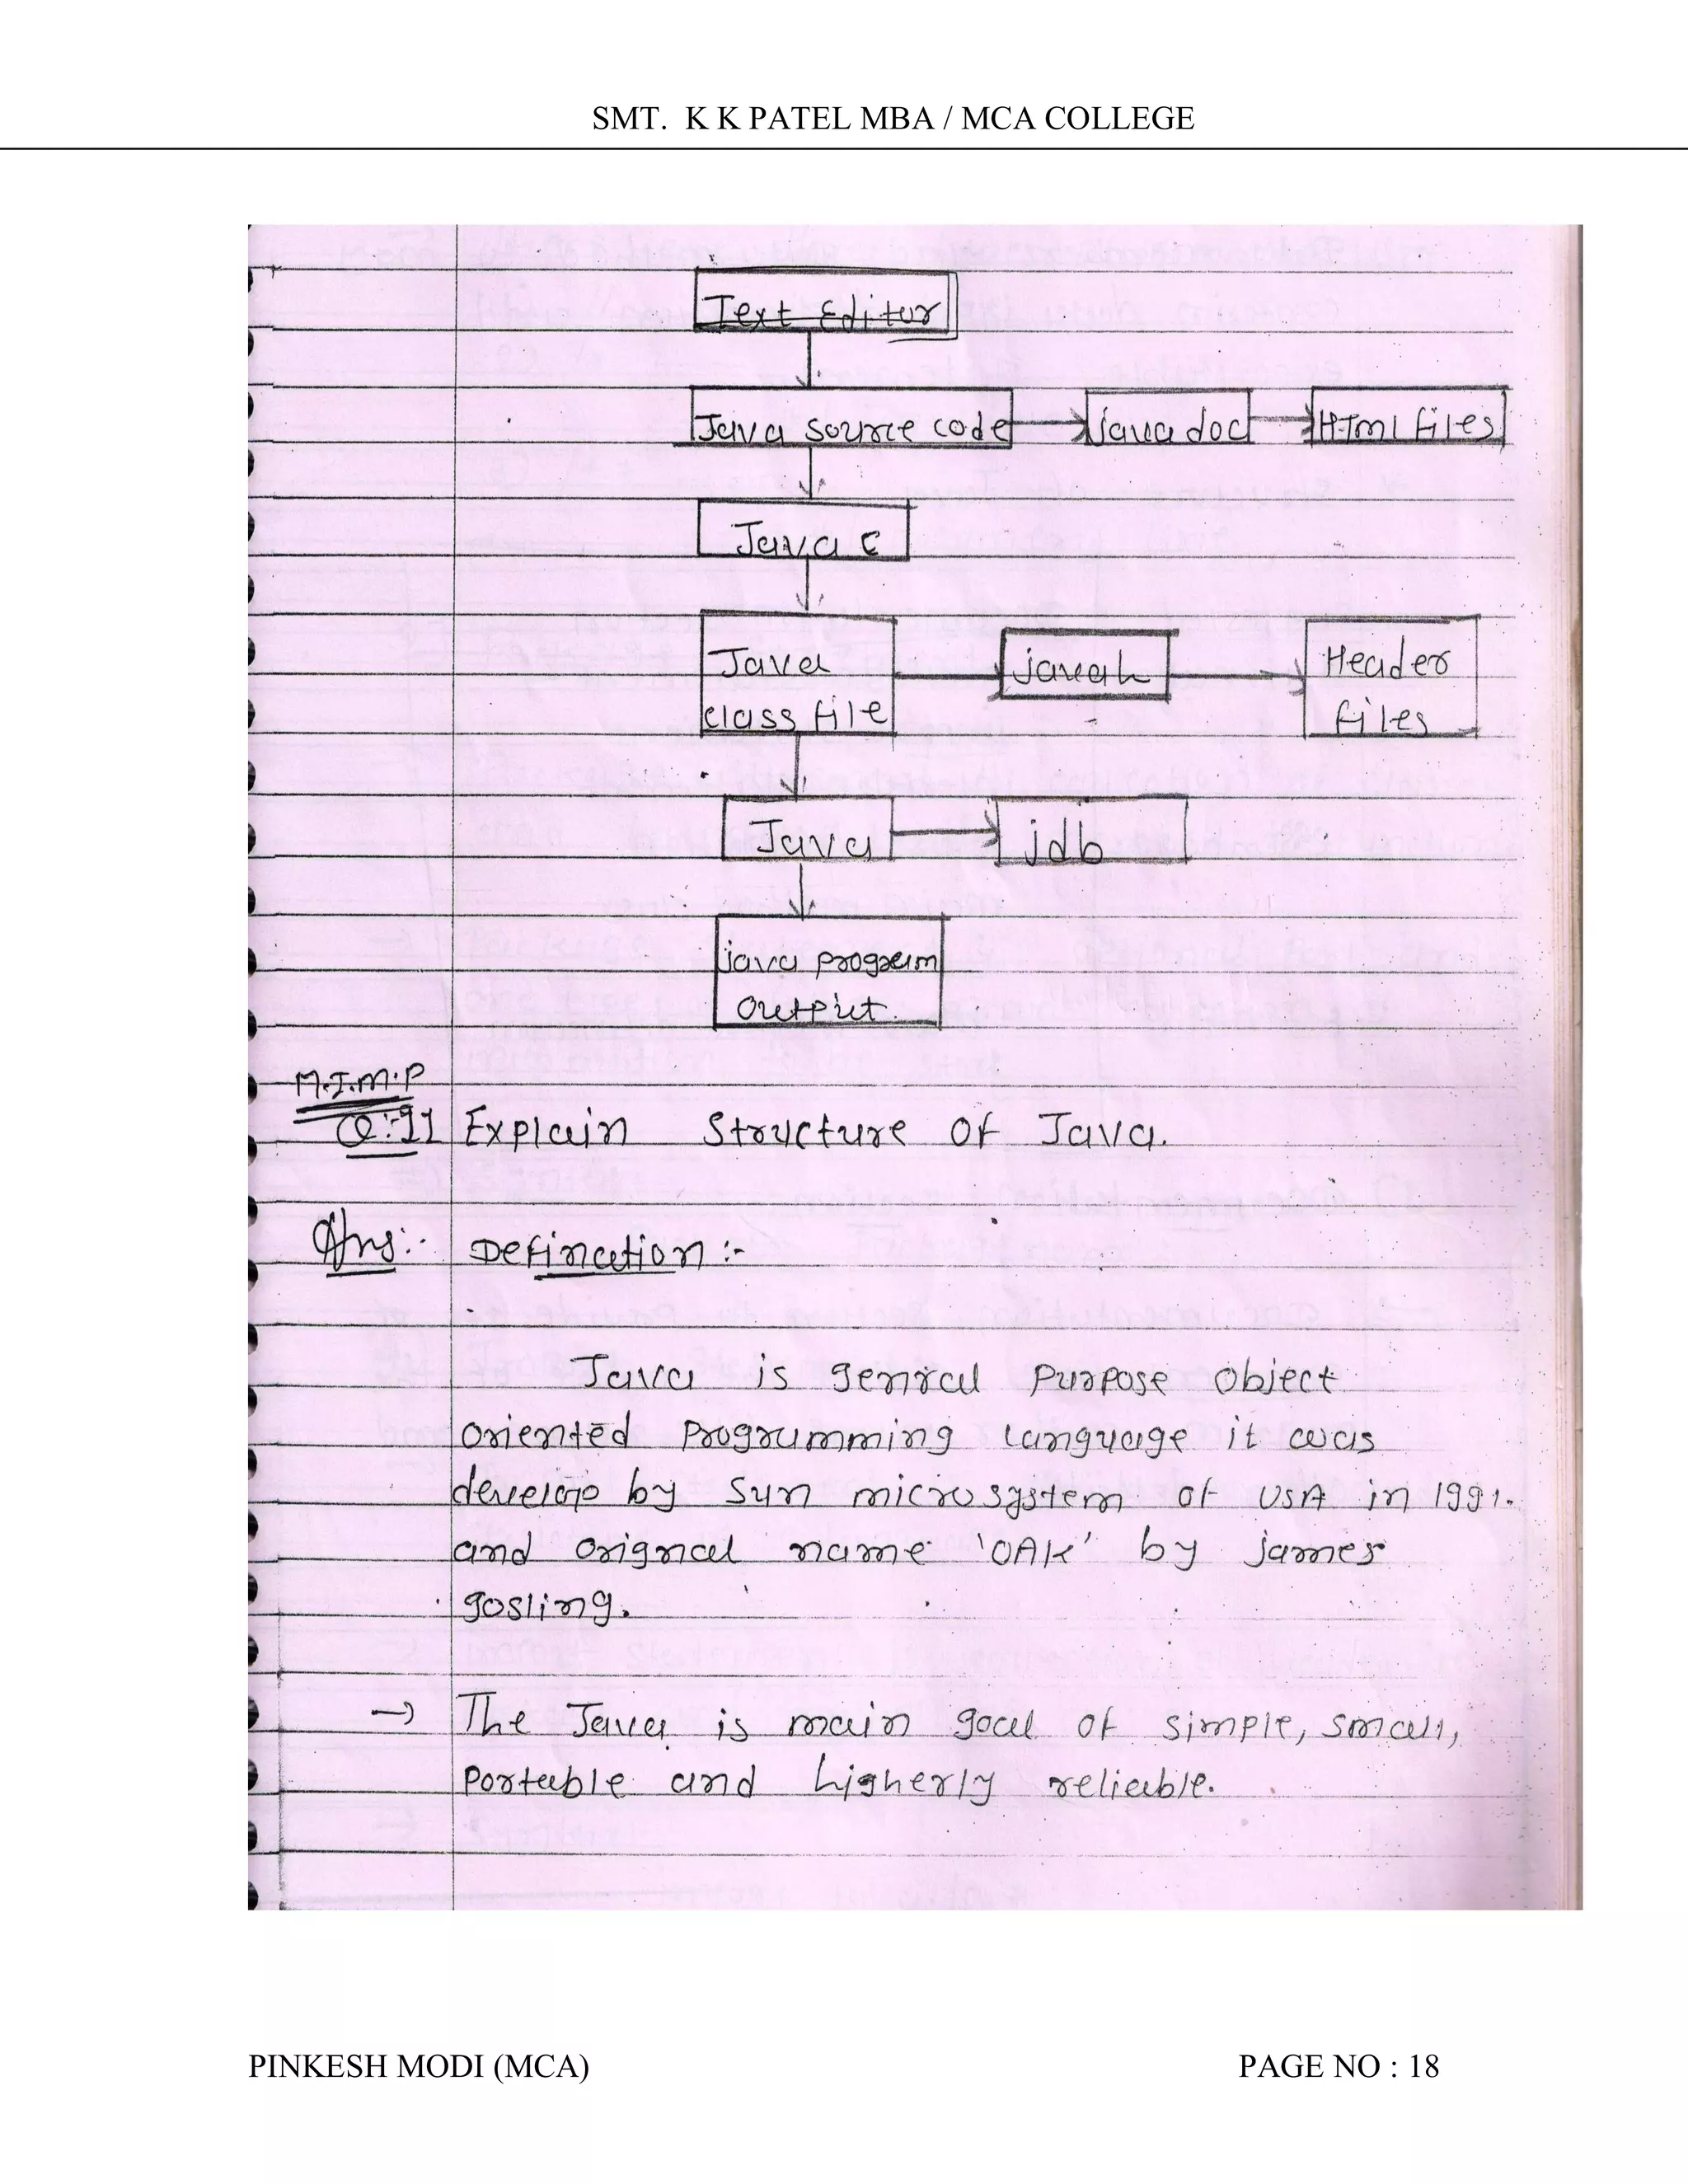 SMT. K K PATEL MBA / MCA COLLEGE
Text Editor
Java source code javadoc HTml files
Java c
Java javah Header
class file files
Java jdb
java program
output
M.I.M.P
Q:-91 Explain Structure of Java.
Ans:- Defination :-
Java is genral purpose object
oriented programming language it was
develop by Sun microsystem of USA in 1991.
and orignal name 'OAK' by james
gosling.
→ The Java is main goal of simple, small,
portable and higherly reliable.
PINKESH MODI (MCA) PAGE NO : 18